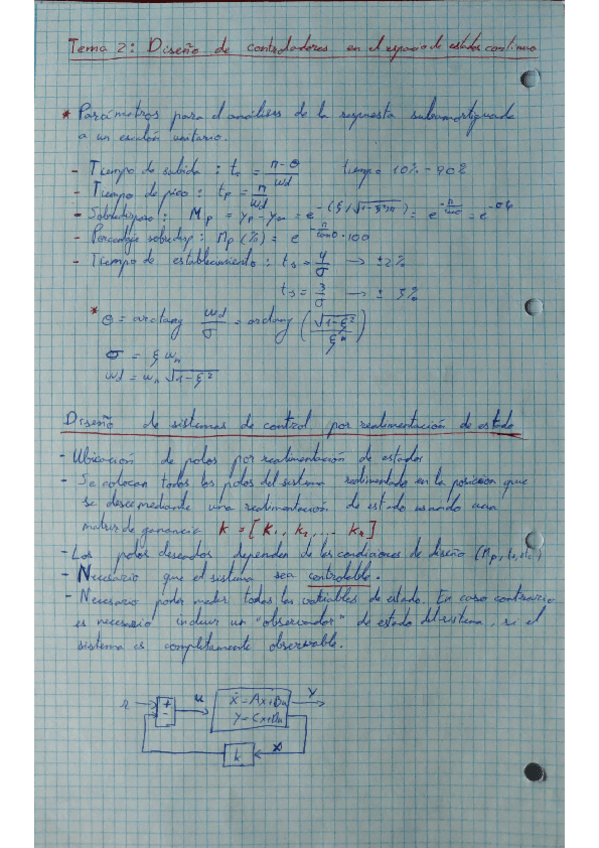 Tema 2: Diseño de controladores en el espacio de estados continuo
* Parámetros para el análisis de la respuesta subamortiguada
a un escalón unitario.
- Tiempo de subida : ts = π-θ / wd tiempo 10% - 90%
- Tiempo de pico : tp = π / wd
- Sobredisparo : Mp = yp - y∞ = e^-(ξ/√1-ξ²)π = e^-π/tanθ = e
- Porcentaje sobredisp : Mp (%) = e^-π/tanθ · 100
- Tiempo de establecimiento : ts = 4/σ → ±2%
ts = 3/σ → ± 5%
* θ = arctang wd/σ = arctang (√1-ξ² / ξ)
σ = ξ wn
wd = wn √1-ξ²
Diseño de sistemas de control por realimentación de estado
- Ubicación de polos por realimentación de estados
- Se colocan todos los polos del sistema realimentado en la posición que
se desee mediante una realimentación de estado usando una
matriz de ganancia K = [K1, K2, ... Kn]
- Los polos deseados dependen de las condiciones de diseño (Mp, ts, etc)
- Necesario que el sistema sea controlable.
- Necesario poder medir todas las variables de estado. En caso contrario
es necesario incluir un "observador" de estado del sistema, si el
sistema es completamente observable.
r + - u ẋ = Ax+Bu y
y = Cx+Du
k x